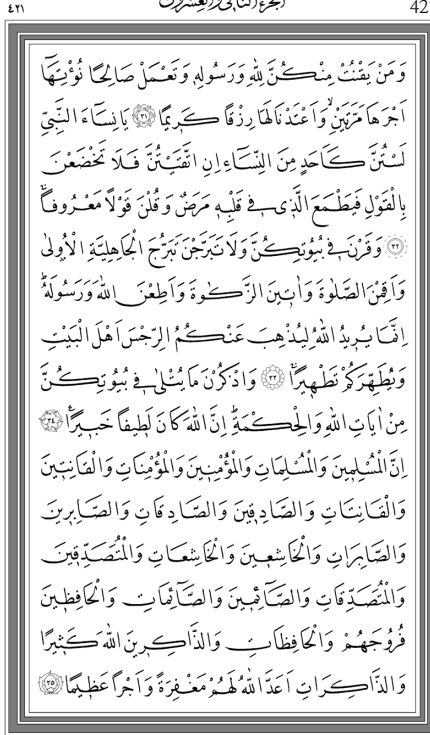 ٤٢١ الجزء الثاني والعشرون 42
وَمَنْ يَقْنُتْ مِنْكُنَّ لِلّٰهِ وَرَسُولِهِ وَتَعْمَلْ صَالِحًا نُؤْتِهَٓا
اَجْرَهَا مَرَّتَيْنِۙ وَاَعْتَدْنَا لَهَا رِزْقًا كَرِيمًا ﴿٣١﴾ يَا نِسَٓاءَ النَّبِيِّ
لَسْتُنَّ كَاَحَدٍ مِنَ النِّسَٓاءِ اِنِ اتَّقَيْتُنَّ فَلَا تَخْضَعْنَ
بِالْقَوْلِ فَيَطْمَعَ الَّذِي فِي قَلْبِهِ مَرَضٌ وَقُلْنَ قَوْلًا مَعْرُوفًاۚ
﴿٣٢﴾ وَقَرْنَ فِي بُيُوتِكُنَّ وَلَا تَبَرَّجْنَ تَبَرُّجَ الْجَاهِلِيَّةِ الْاُولٰى
وَاَقِمْنَ الصَّلٰوةَ وَاٰتِينَ الزَّكٰوةَ وَاَطِعْنَ اللّٰهَ وَرَسُولَهُۜ
اِنَّمَا يُرِيدُ اللّٰهُ لِيُذْهِبَ عَنْكُمُ الرِّجْسَ اَهْلَ الْبَيْتِ
وَيُطَهِّرَكُمْ تَطْهِيرًاۚ ﴿٣٣﴾ وَاذْكُرْنَ مَا يُتْلٰى فِي بُيُوتِكُنَّ
مِنْ اٰيَاتِ اللّٰهِ وَالْحِكْمَةِۜ اِنَّ اللّٰهَ كَانَ لَطِيفًا خَبِيرًا۟ ﴿٣٤﴾
اِنَّ الْمُسْلِمِينَ وَالْمُسْلِمَاتِ وَالْمُؤْمِنِينَ وَالْمُؤْمِنَاتِ وَالْقَانِتِينَ
وَالْقَانِتَاتِ وَالصَّادِقِينَ وَالصَّادِقَاتِ وَالصَّابِرِينَ
وَالصَّابِرَاتِ وَالْخَاشِعِينَ وَالْخَاشِعَاتِ وَالْمُتَصَدِّقِينَ
وَالْمُتَصَدِّقَاتِ وَالصَّٓائِمِينَ وَالصَّٓائِمَاتِ وَالْحَافِظِينَ
فُرُوجَهُمْ وَالْحَافِظَاتِ وَالذَّاكِرِينَ اللّٰهَ كَثِيرًا
وَالذَّاكِرَاتِ اَعَدَّ اللّٰهُ لَهُمْ مَغْفِرَةً وَاَجْرًا عَظِيمًا ﴿٣٥﴾